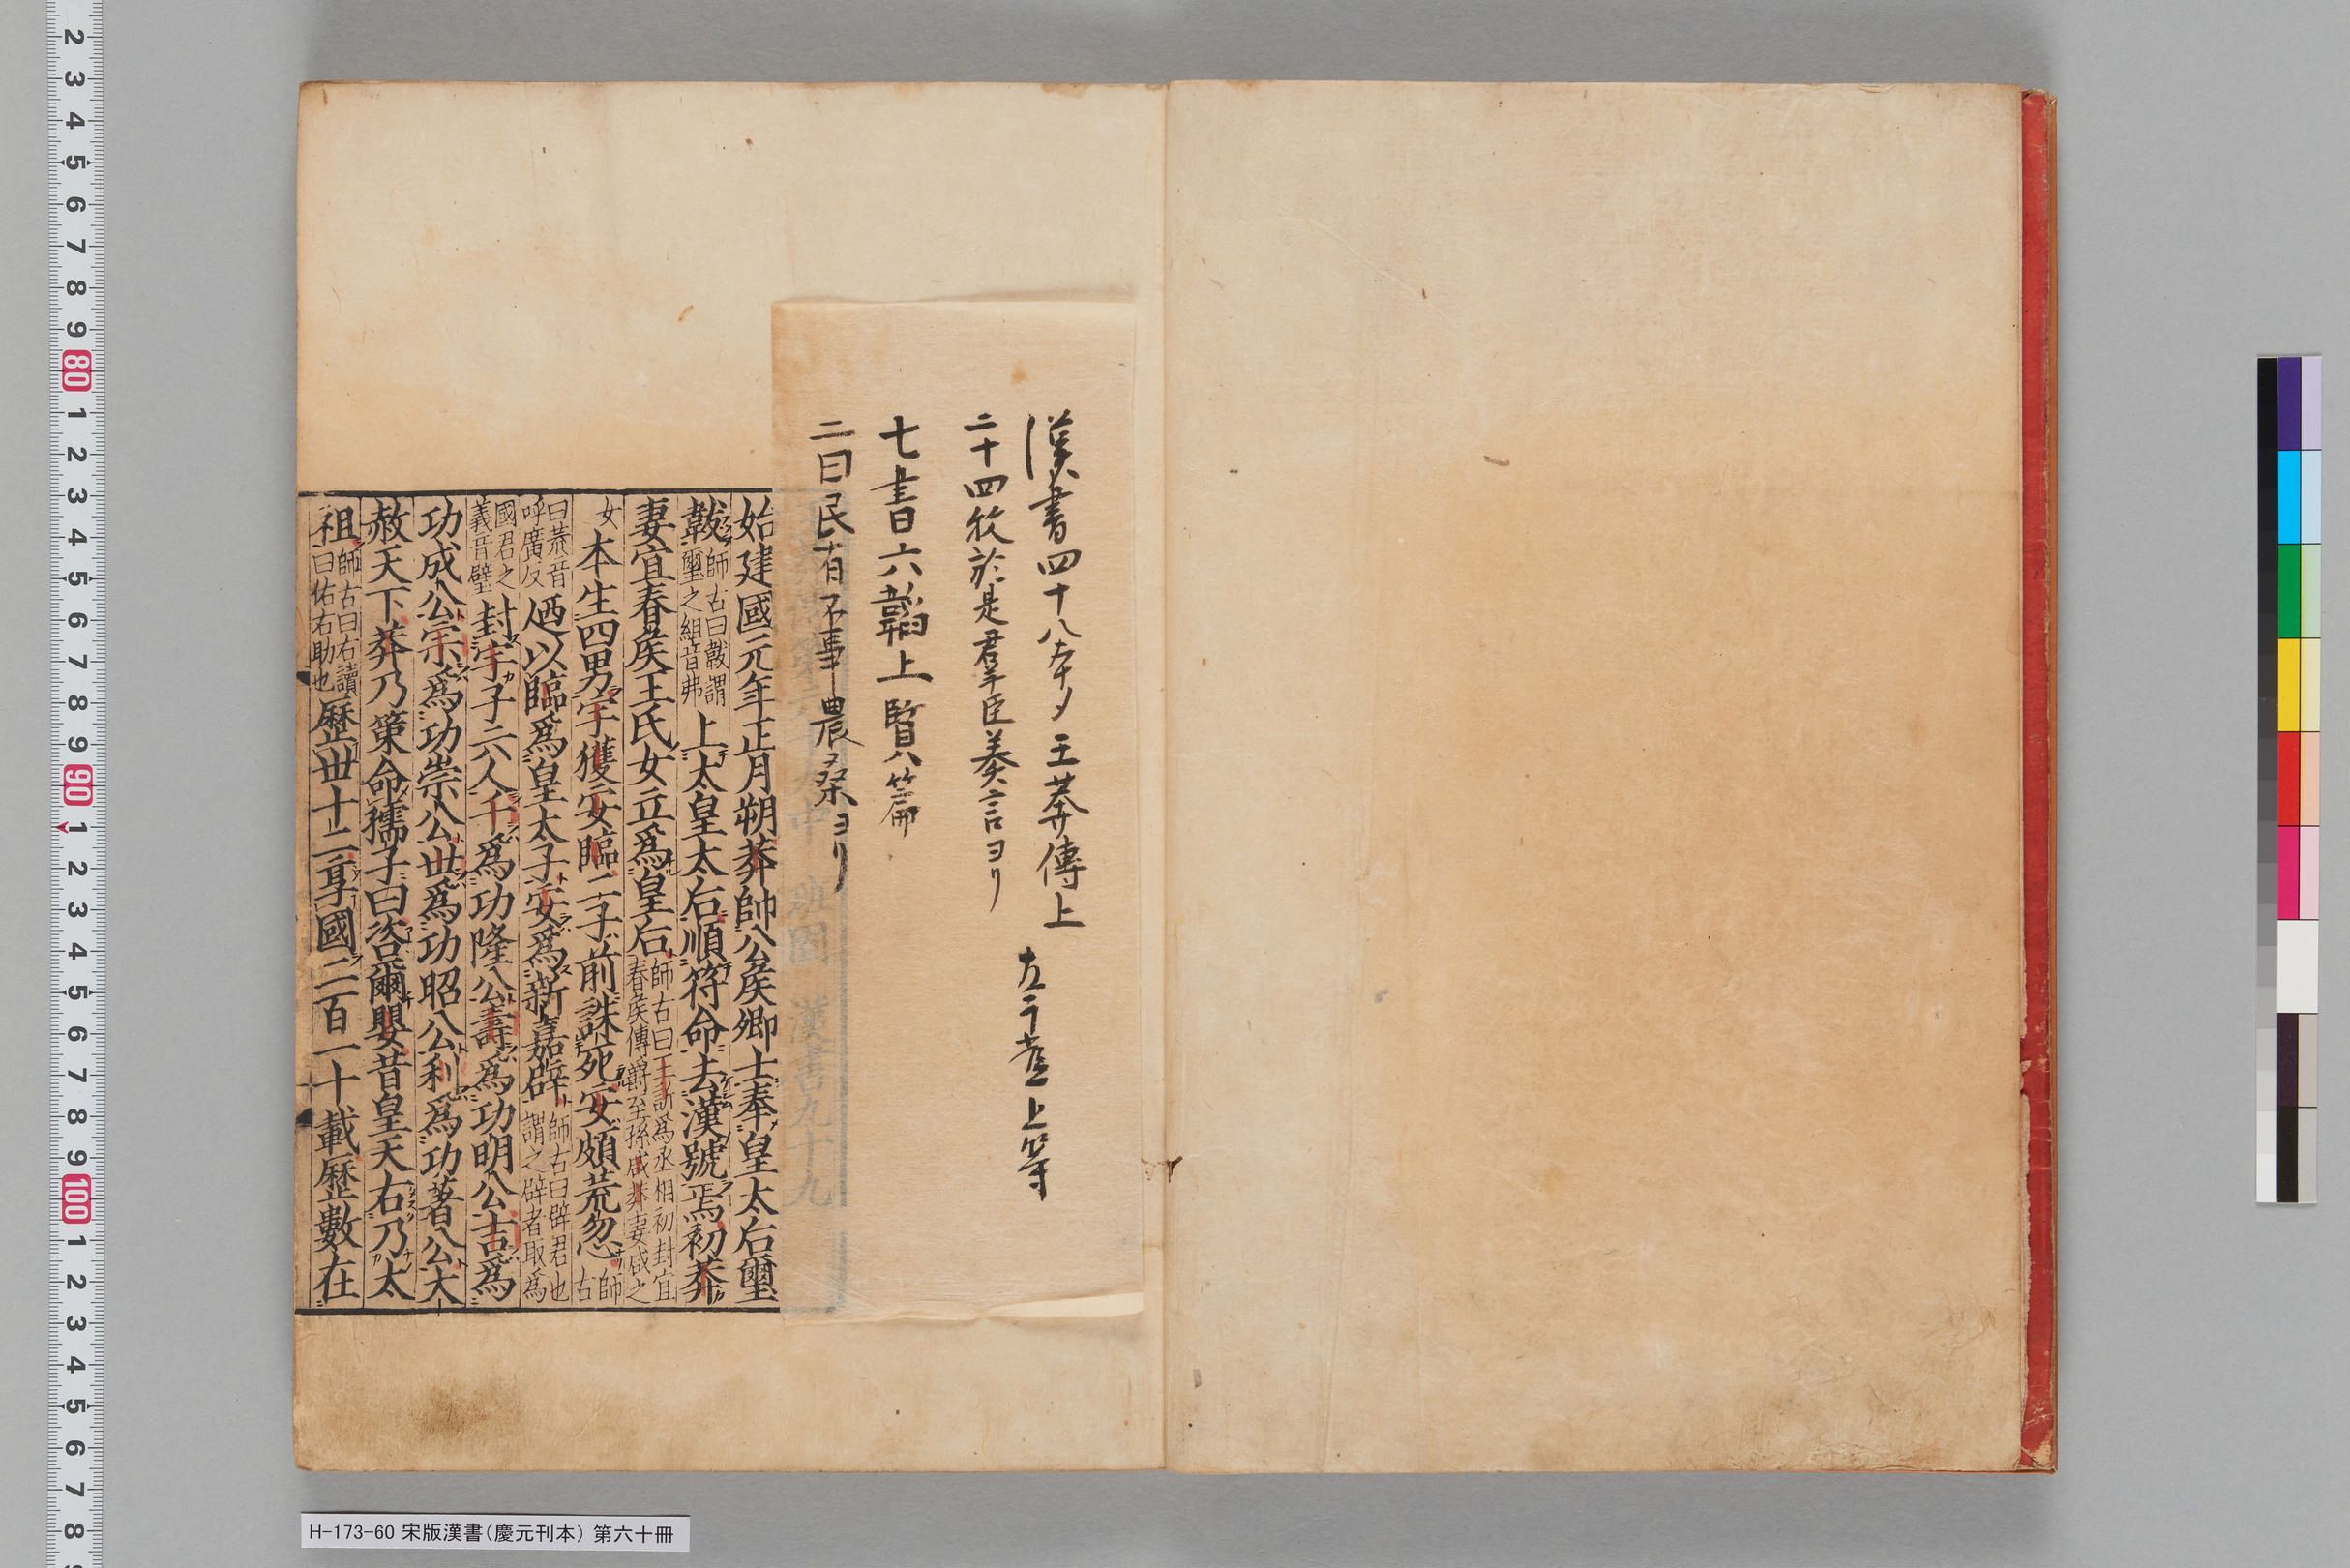 漢書四十八本メ 王莽傳上
二十四枚於是羣臣奏言ヨリ
七書六韜上賢篇
二曰民有不事農桑ヨリ
上等
班固 漢書九十九
始建國元年正月朔莽帥公侯卿士奉皇太后璽
韍師古曰韍謂璽之組音弗上太皇太后順符命去漢號焉初莽
妻宜春侯王氏女立爲皇后師古曰王訢爲丞相初封宜春侯傳爵至孫咸莽妻咸之
女本生四男宇獲安臨二子前誅死安頗荒忽師古
曰荒音呼廣反廼以臨爲皇太子安爲新嘉辟師古曰辟君也謂之辟者取爲
國君之義音壁封宇子六人千爲功隆公壽爲功明公吉爲
功成公宗爲功崇公世爲功昭公利爲功著公大
赦天下莽乃策命孺子曰咨爾嬰昔皇天右乃太
祖師古曰右讀曰佑右助也歷世十二享國二百一十載歷數在
H-173-60 宋版漢書(慶元刊本) 第六十冊
2 3 4 5 6 7 8 9 80 1 2 3 4 5 6 7 8 9 90 1 2 3 4 5 6 7 8 9 100 1 2 3 4 5 6 7 8